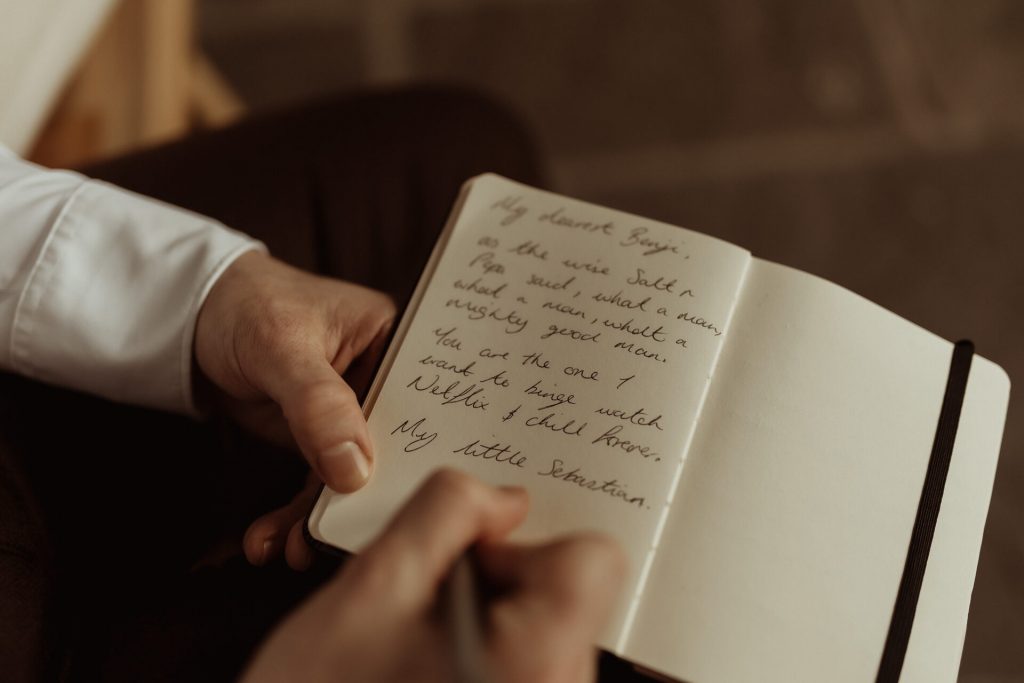 My dearest Benji,
as the wise Salt n
Pepa said, what a man,
what a man, what a
mighty good man.
You are the one I
want to binge watch
Netflix & chill forever.
My little Sebastian.